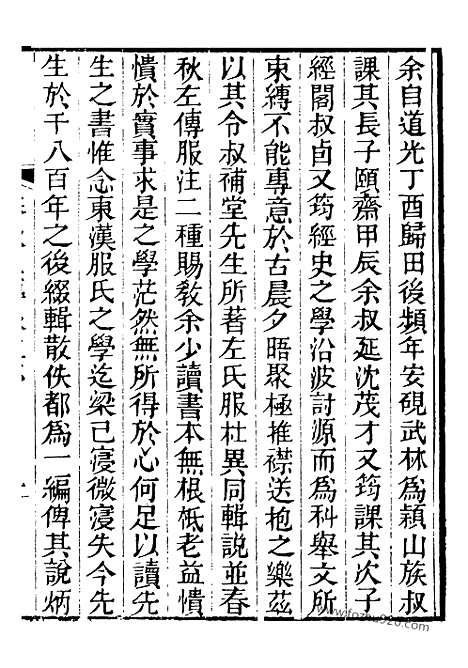 余自道光丁酉歸田後頻年安硯武林為穎山族叔
課其長子頤齋甲辰余叔延沈茂才又筠課其次子
經閣叔卣又筠經史之學沿波討源而為科舉文所
束縛不能專意於古晨夕晤聚極推襟送抱之樂茲
以其令叔補堂先生所著左氏服杜異同輯說並春
秋左傳服注二種賜敎余少讀書本無根柢老益憒
憒於實事求是之學茫然無所得於心何足以讀先
生之書惟念東漢服氏之學迄梁已寖微寖失今先
生於千八百年之後綴輯散佚都為一編俾其說炳
www.fozhu920.com